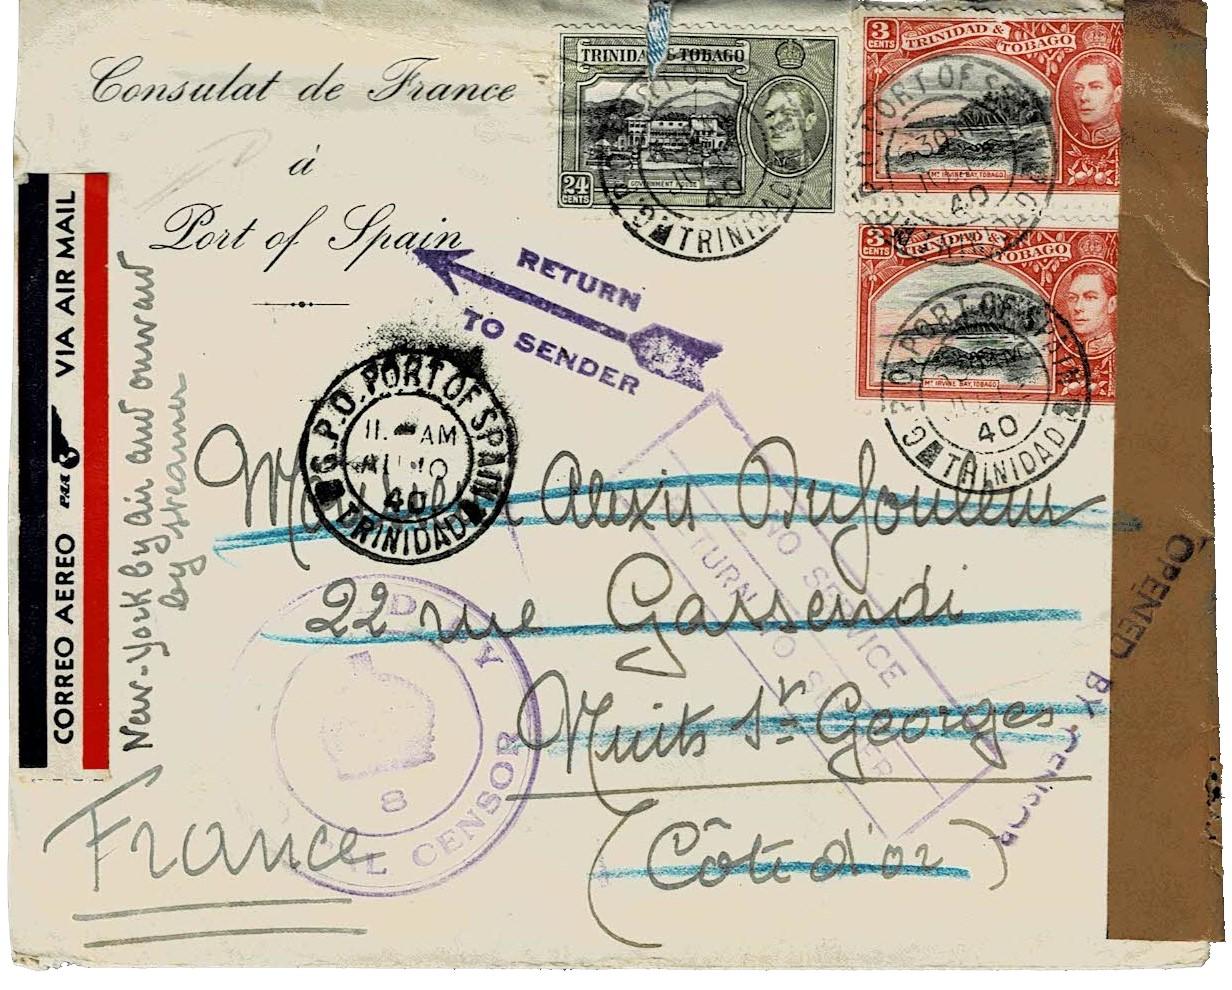 Consulat de France
à
Port of Spain
TRINIDAD & TOBAGO
24
CENTS
GOVERNMENT HOUSE
3
CENTS
TRINIDAD &
TOBAGO
Mt IRVINE BAY, TOBAGO
3
CENTS
TRINIDAD &
TOBAGO
Mt IRVINE BAY, TOBAGO
G.P.O. PORT OF SPAIN
40
TRINIDAD
PORT OF
40
G.P.O. PORT OF SPAIN
40
TRINIDAD
RETURN
TO SENDER
G.P.O. PORT OF SPAIN
11. AM
40
TRINIDAD
CORREO AEREO VIA AIR MAIL
New-York by air and onward
by steamer
Alexis Dufouleur
22 rue Gassendi
Nuits St Georges
(Côte d'or)
France
NO SERVICE
RETURN TO SENDER
8
CENSOR
OPENED BY CENSOR